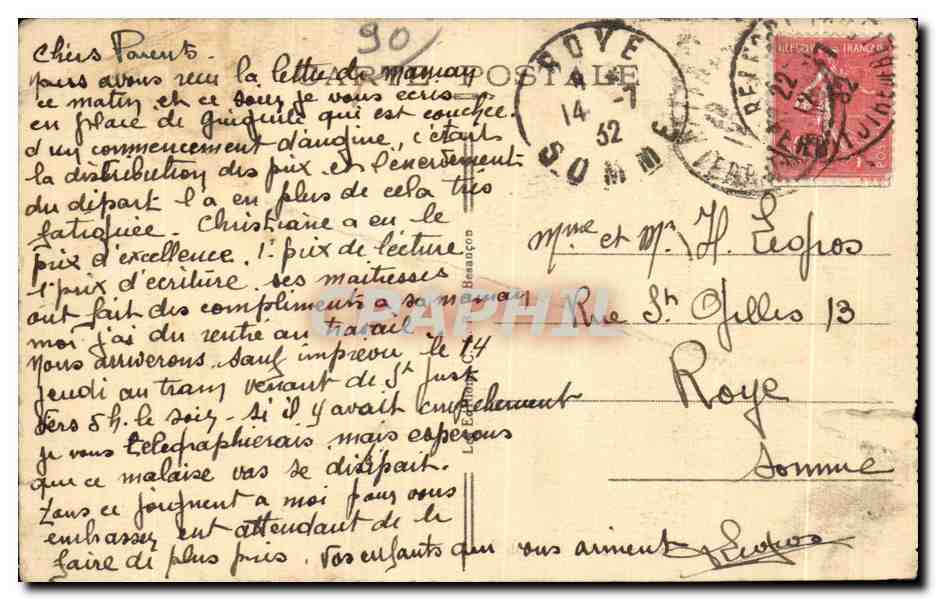 90
CARTE POSTALE
Chers Parents
nous avons reçu la lettre de maman
ce matin et ce soir je vous écris
en place de qui est couchée
d'un commencement d'angine, c'était
la distribution des prix et l'énervement
du départ l'a en plus de cela très
fatiguée. Christiane a eu le
prix d'excellence, 1r prix de lecture
1r prix d'écriture ses maitresses
ont fait des compliments à sa maman
moi j'ai du rentre au travail
Nous arriverons sauf imprévu le 14
jeudi au tram venant de St Just
vers 5h. le soir - si il y avait empêchement
je vous télégraphierais mais espérons
que ce malaise vas se disipait.
Tous ce joignent à moi pour vous
embrasser ent attendant de le
faire de plus près. Vos enfants qui vous aiment Legros
ROYE
14 -7
32
SOMME
REPUBLIQUE FRANÇAISE
Mme et Mr H. Legros
Rue St Gilles 13
Roye
Somme
Besançon
CPAPHIL